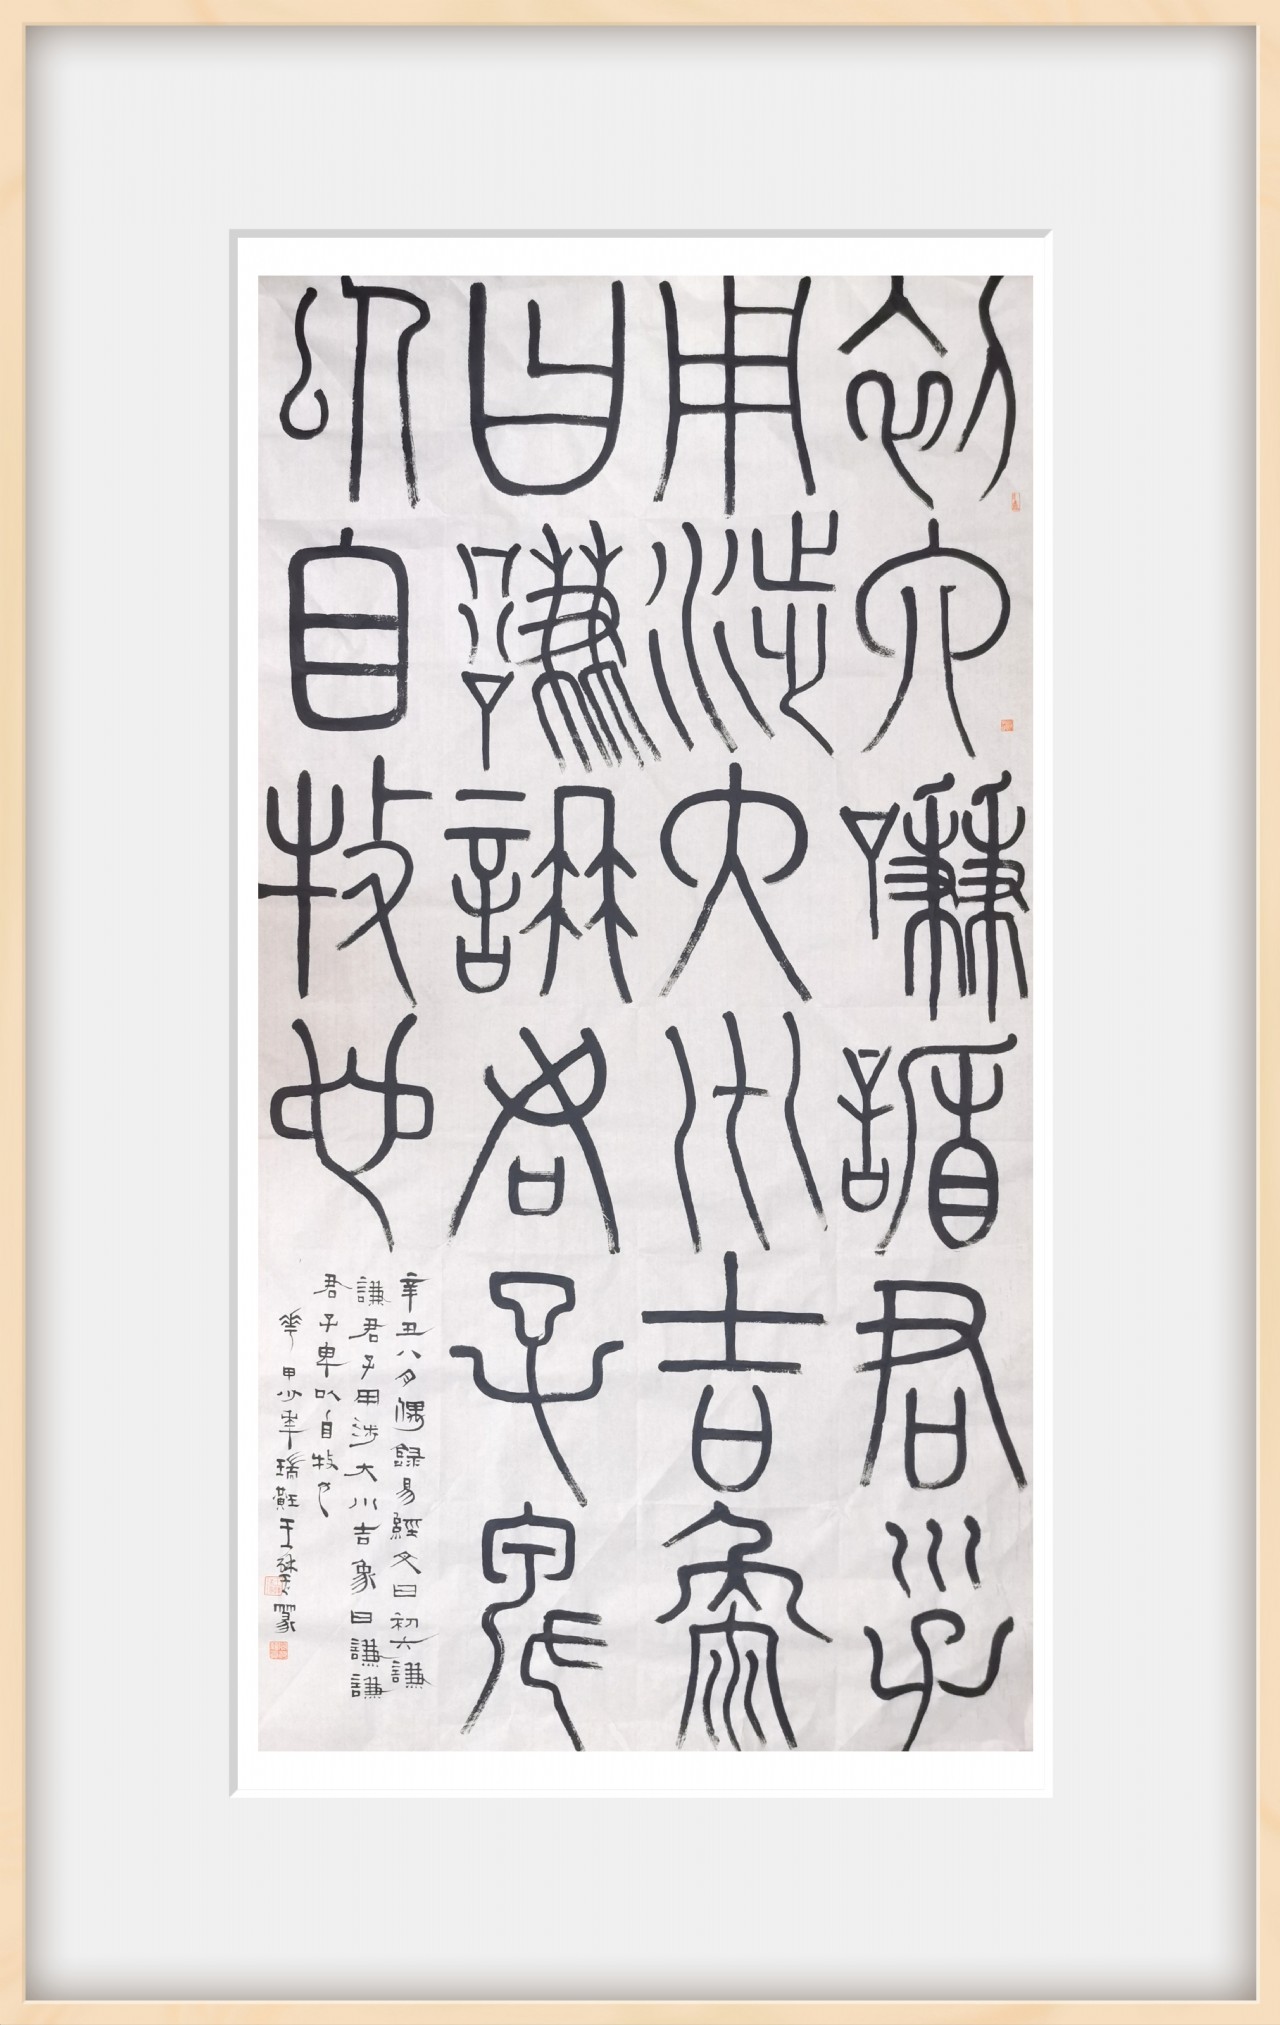 初六謙謙君子
用涉大川吉象
曰謙謙君子卑
以自牧也
辛丑八月偶錄易經文曰初六謙
謙君子用涉大川吉象曰謙謙
君子卑以自牧也
華甲少年瑞王篆